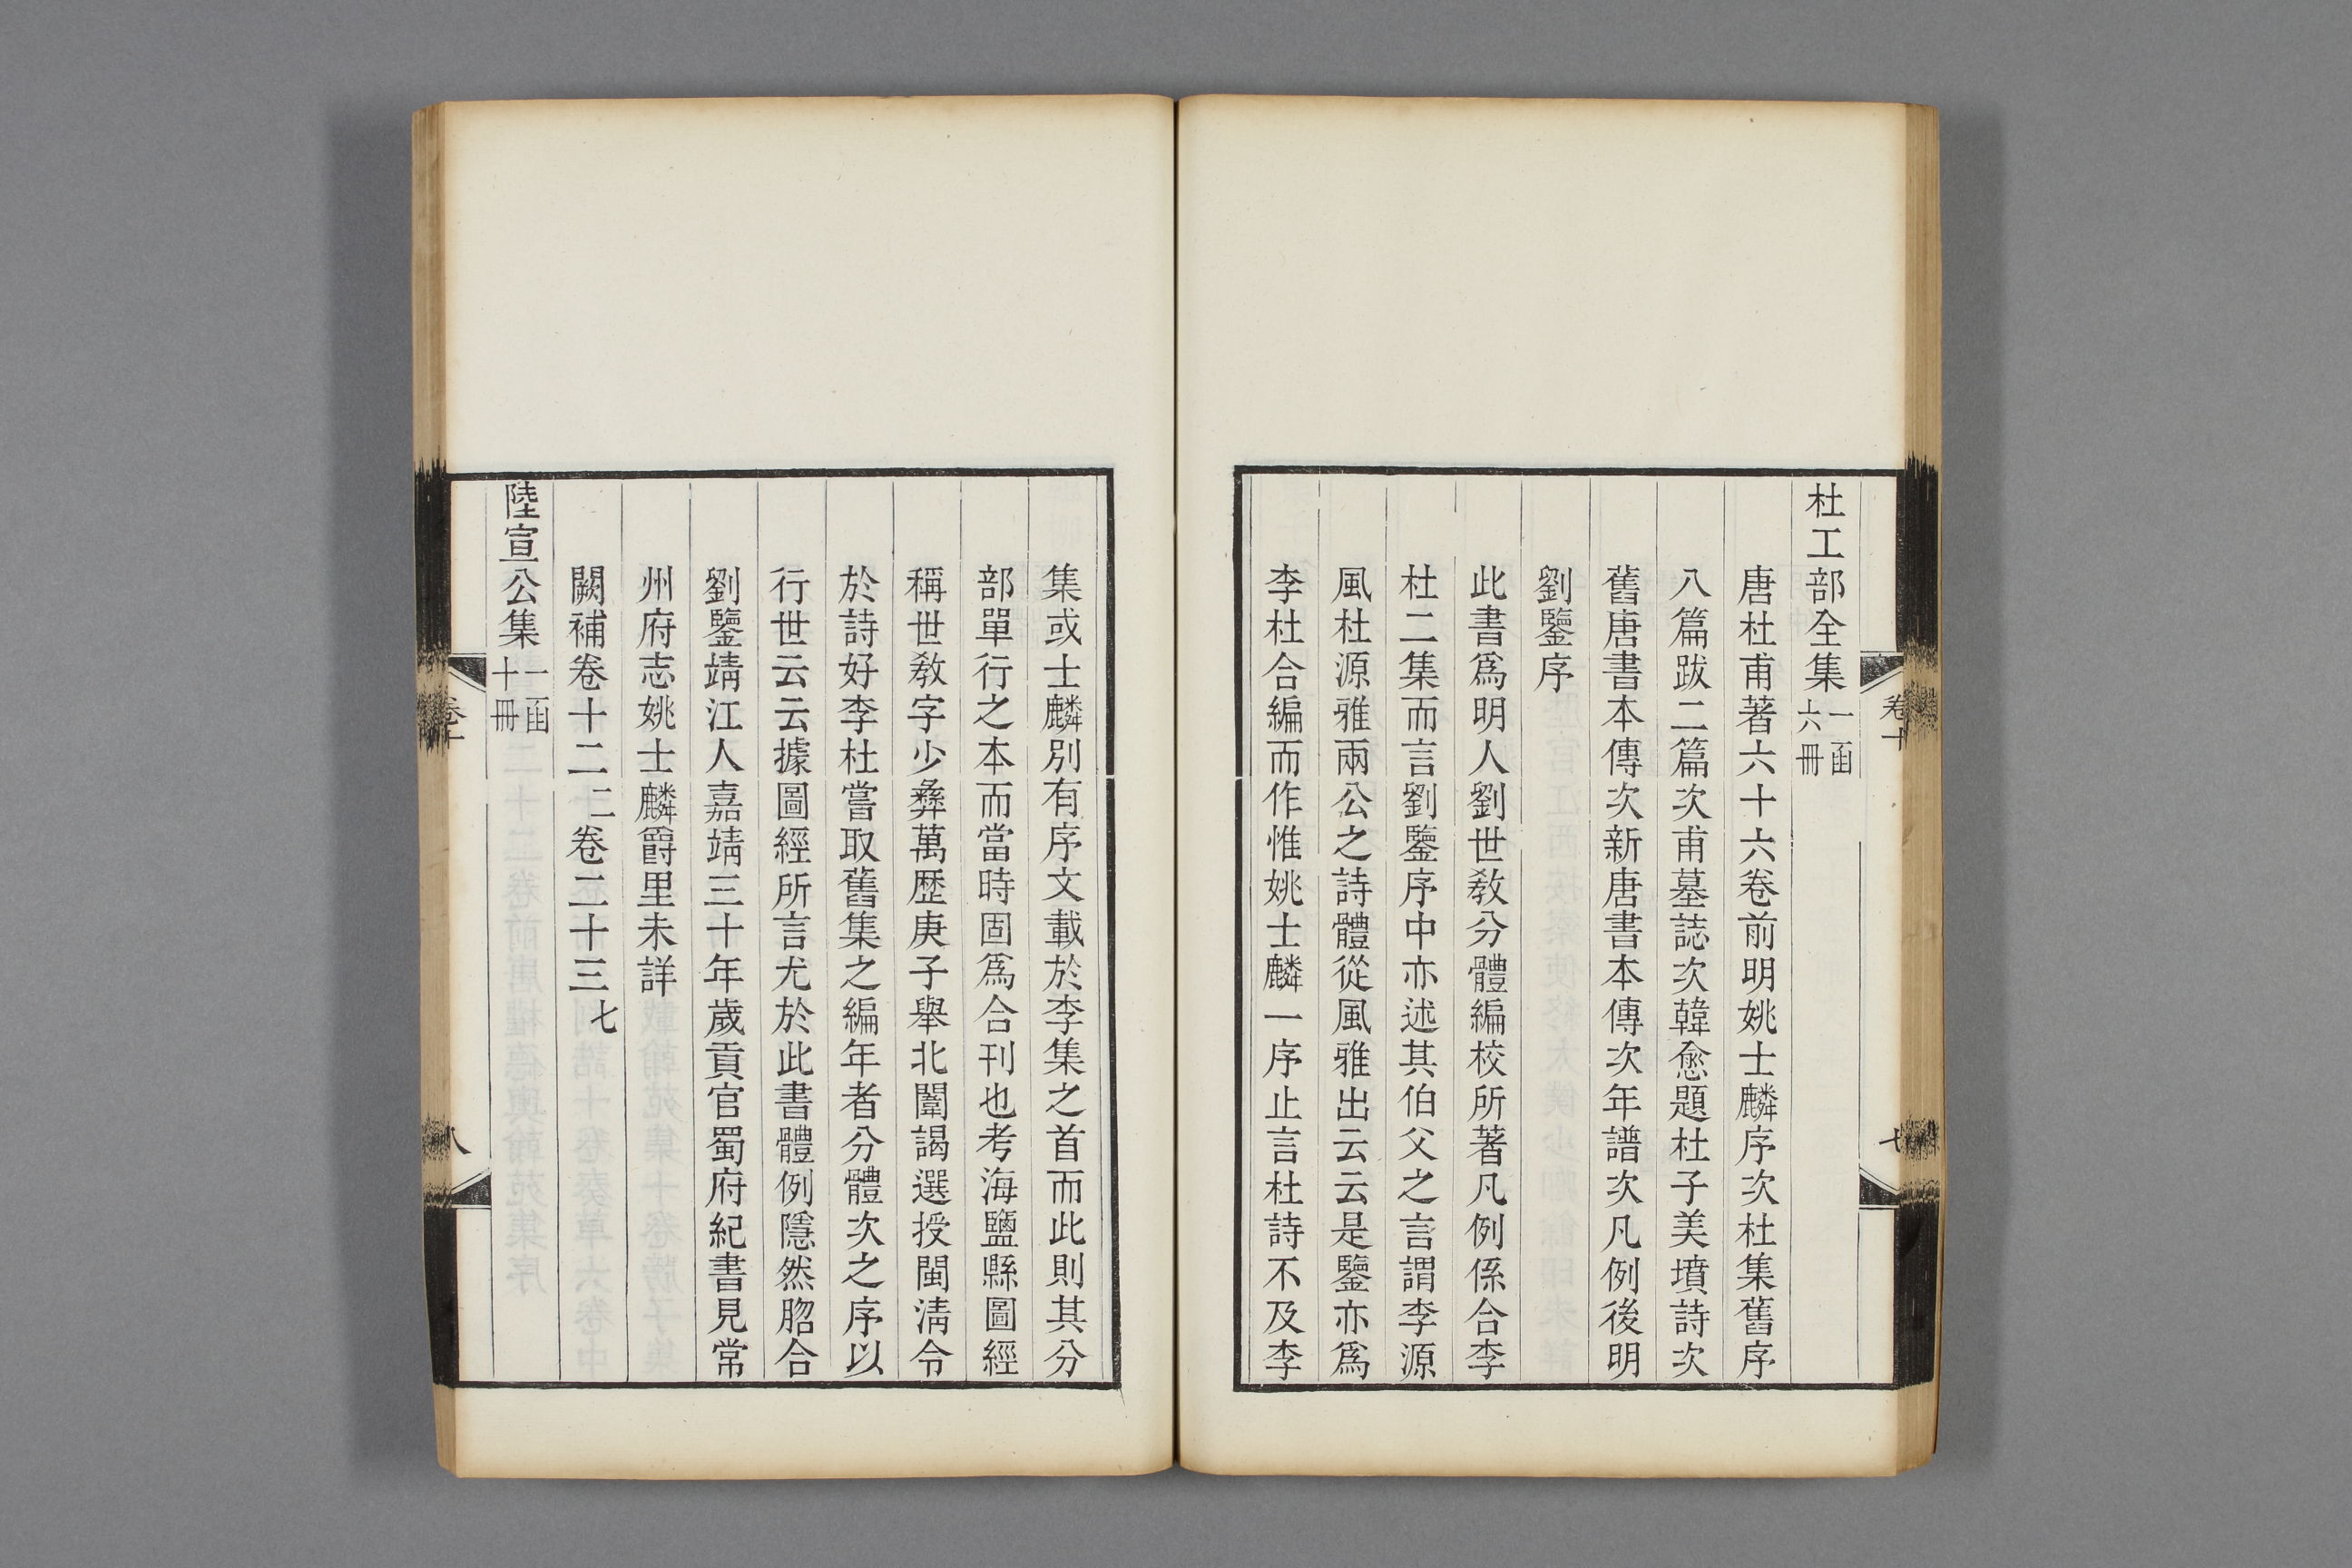 杜工部全集一函六冊
唐杜甫著六十六卷前明姚士麟序次杜集舊序
八篇跋二篇次甫墓誌次韓愈題杜子美墳詩次
舊唐書本傳次新唐書本傳次年譜次凡例後明
劉鑒序
此書爲明人劉世敎分體編校所著凡例係合李
杜二集而言劉鑒序中亦述其伯父之言謂李源
風杜源雅兩公之詩體從風雅出云云是鑒亦爲
李杜合編而作惟姚士麟一序止言杜詩不及李
卷十
七
集或士麟別有序文載於李集之首而此則其分
部單行之本而當時固爲合刊也考海鹽縣圖經
稱世敎字少彝萬歷庚子舉北闈謁選授閩淸令
於詩好李杜嘗取舊集之編年者分體次之序以
行世云云據圖經所言尤於此書體例隱然脗合
劉鑒靖江人嘉靖三十年歲貢官蜀府紀書見常
州府志姚士麟爵里未詳
闕補卷十二二卷二十三七
陸宣公集一函十冊
卷十
八